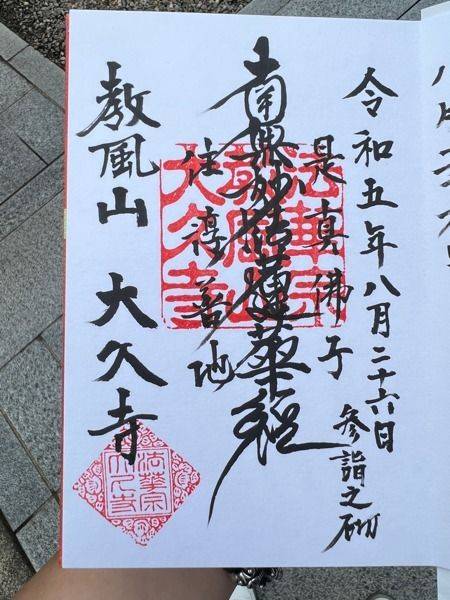 令和五年八月二十六日
参詣之砌
是真佛子
南無妙法蓮華經
住淳善地
教風山 大久寺
法華宗
教風山
大久寺
法華宗
大久寺